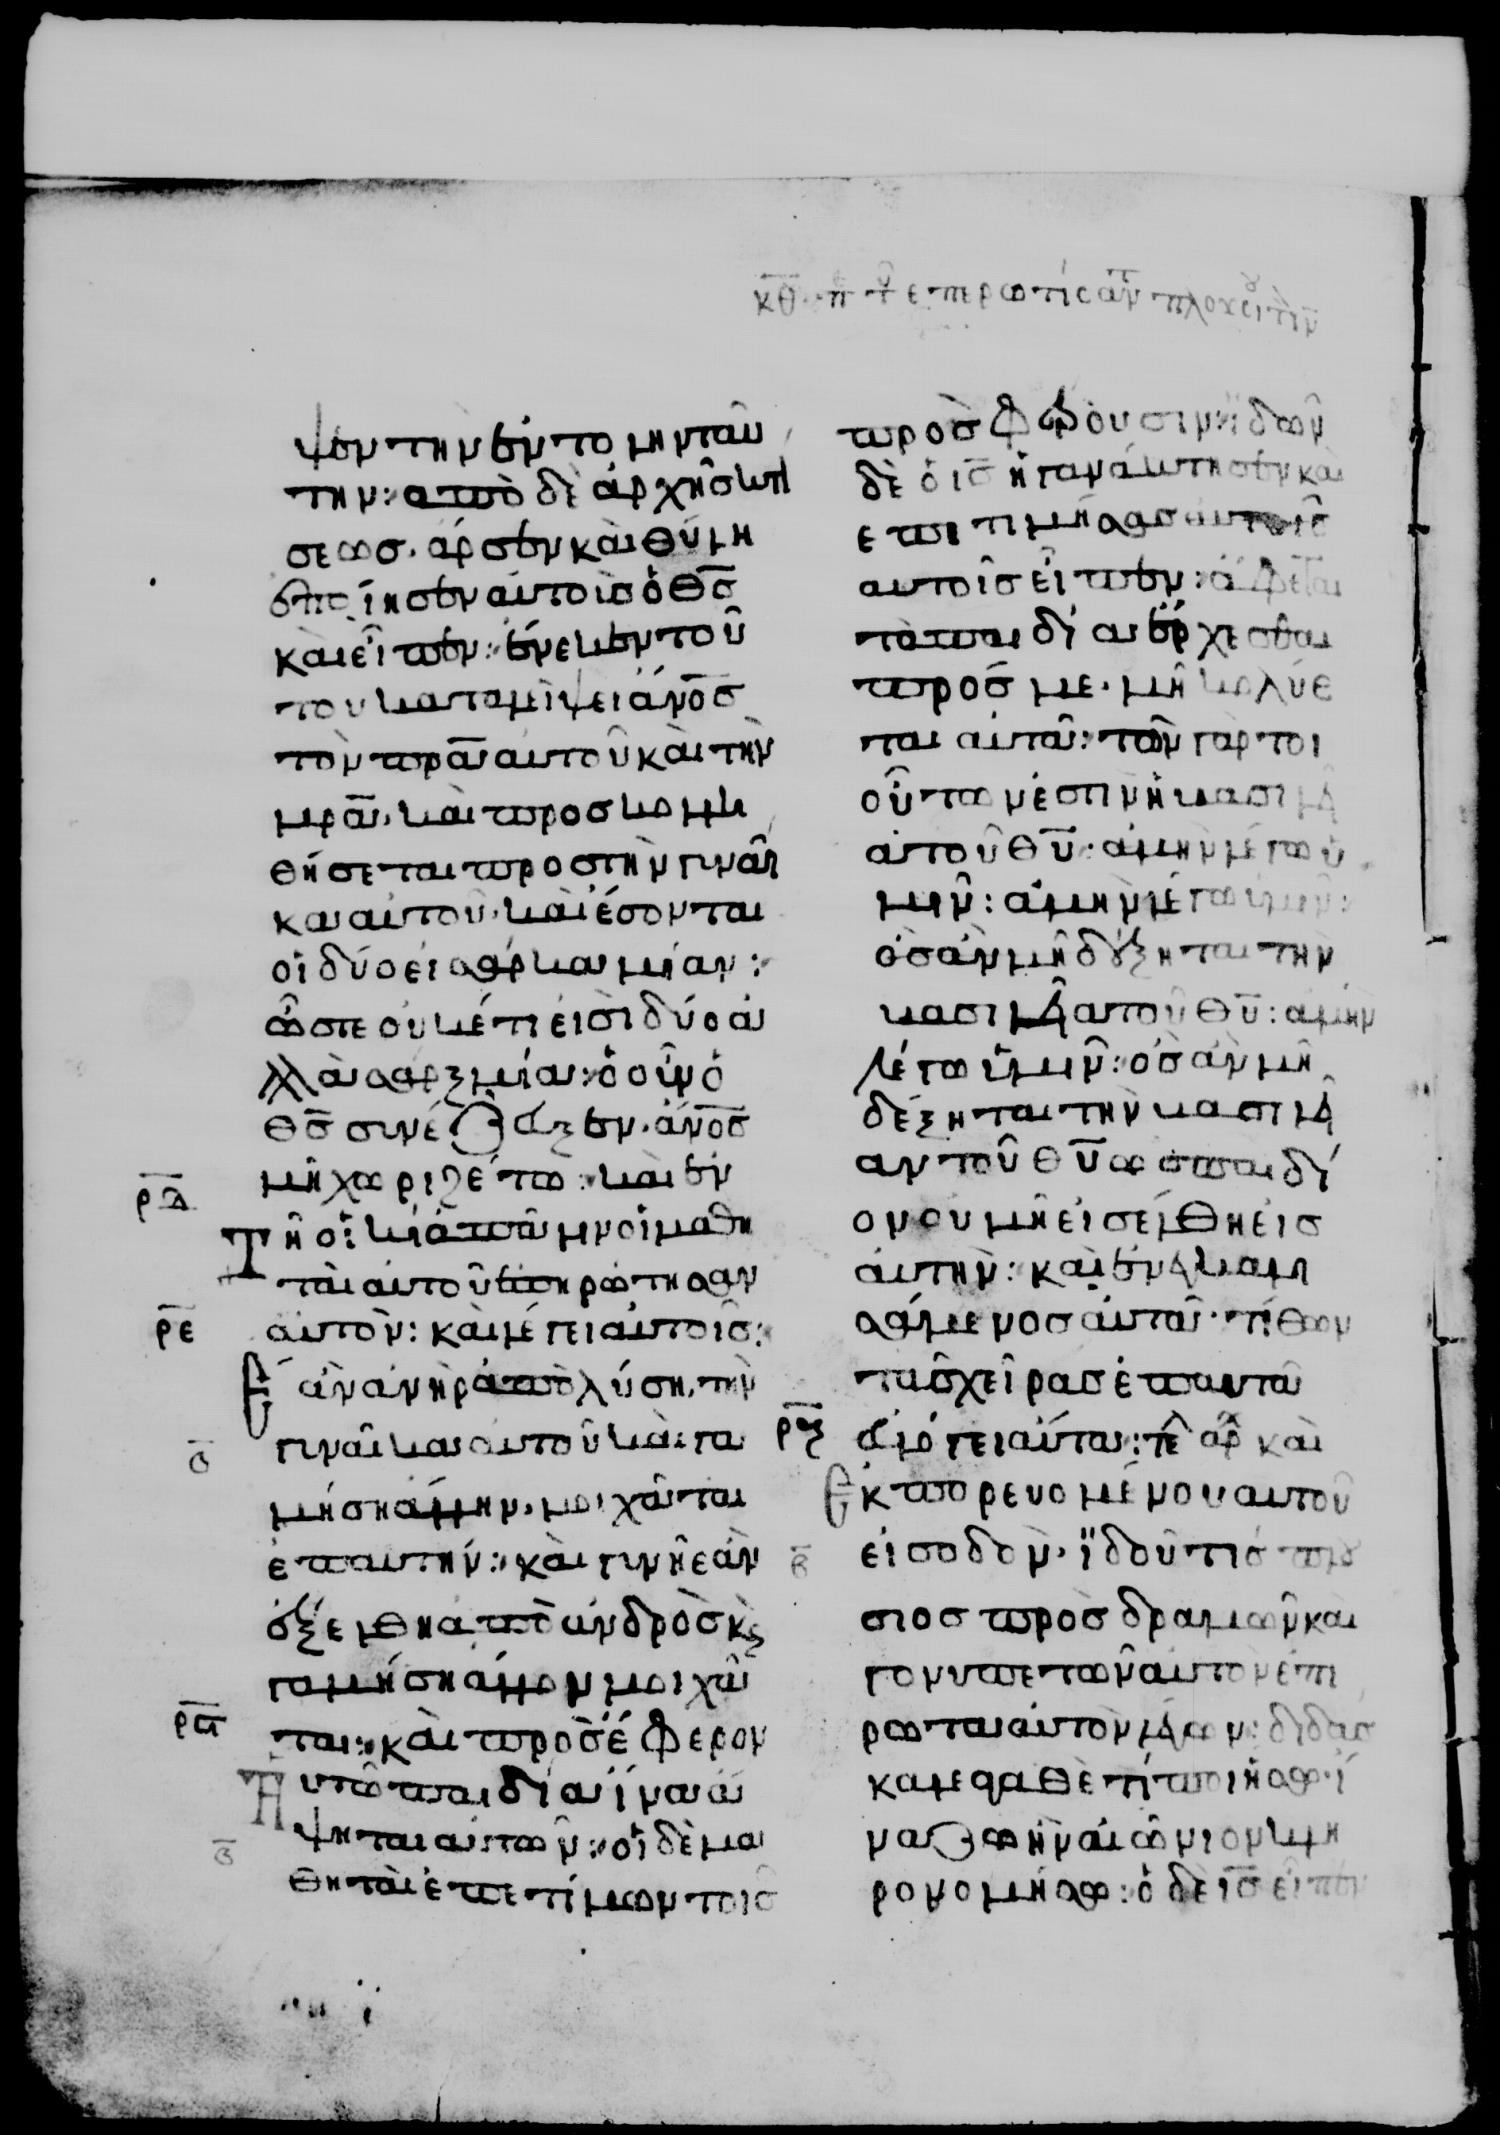 κθ π τ επερωτίσαν πλουσι
ψεν τὴν ἐντολὴν ταῦ
την: ἀπὸ δὲ ἀρχῆσ κτί
σεωσ. ἄρσεν καὶ θύλη
ἐποίησεν αὐτοὺσ ὁ θσ
καὶ εἶπεν: ἕνεκεν τοῦ
του καταλίψει ἄνοσ
τὸν πρα αὐτοῦ καὶ τὴν
μρα. καὶ προσκολλι
θήσεται προσ τὴν γυναῖ
κα αὐτοῦ. καὶ ἔσονται
οἱ δύο εἰσ σάρκα μίαν:
ὥστε οὐκέτι εἰσὶ δύο ἀ
λλὰ σάρξ μία: ὃ οὖν ὁ
θσ συνέζευξεν. ἄνοσ
μὴ χωριζέτω: καὶ ἐν
ρδ
τῆ οἰκία πάλιν οἱ μαθη
ταὶ αὐτοῦ ἐπηρώτησαν
ρε αὐτὸν: καὶ λέγει αὐτοῖσ:
Ἐὰν ἀνὴρ ἀπολύση τὴν
γυναῖκα αὐτοῦ καὶ γα
μήση ἄλλην. μοιχᾶται
ἐπ αὐτήν: καὶ γυνὴ ἐὰν
ἐξελθη ἀπὸ ἀνδρὸσ κς
γαμήση ἄλλον μοιχᾶ
ται: καὶ προσέφερον
αὐτῶ παιδία ἵνα ἅ
ψηται αὐτῶν: οἱ δὲ μα
θηταὶ ἐπετίμων τοῖσ
προσφέρουσιν: ἰδὼν
δὲ ὁ ισ ἠγανάκτησεν καὶ
ἐπιτιμήσασ αὐτοῖσ
αὐτοῖσ εἶπεν: ἄφεται
τὰ παιδία ἔρχεσθαι
πρόσ με. μὴ κολύε
ται αὐτα: τῶν γὰρ τοι
οὔτων ἐστὶν ἡ βασιλεί
α τοῦ θυ: ἀμὴν λέγω ὑ
μῖν: ἀμὴν λέγω ὑμῖν:
ὃσ ἂν μὴ δέξηται τὴν
βασιλεία τοῦ θυ: ἀμὴν
λέγω ὑμῖν: ὃσ ἂν μὴ
δέξηται τὴν βασιλεί
αν τοῦ θυ ὡσ παιδί
ον οὐ μὴ εἰσέλθη εἰσ
αὐτὴν: καὶ ἐναγκαλι
σάμενοσ αὐτα. τίθων
τὰσ χεῖρασ ἐπ αυτα
καὶ
Ἐκπορευομένου αὐτοῦ
εἰσ οδὸν. ἰδοῦ τισ πλού
σιοσ προσδραμὼν καὶ
γονυπετῶν αὐτὸν ἐπι
ρωτα αὐτὸν λέγων: διδάσ
καλε αγαθὲ τί ποιήσω ἵ
να ζωὴν αἰώνιον κλη
ρονομήσω: ὁ δὲ ισ εἶπεν